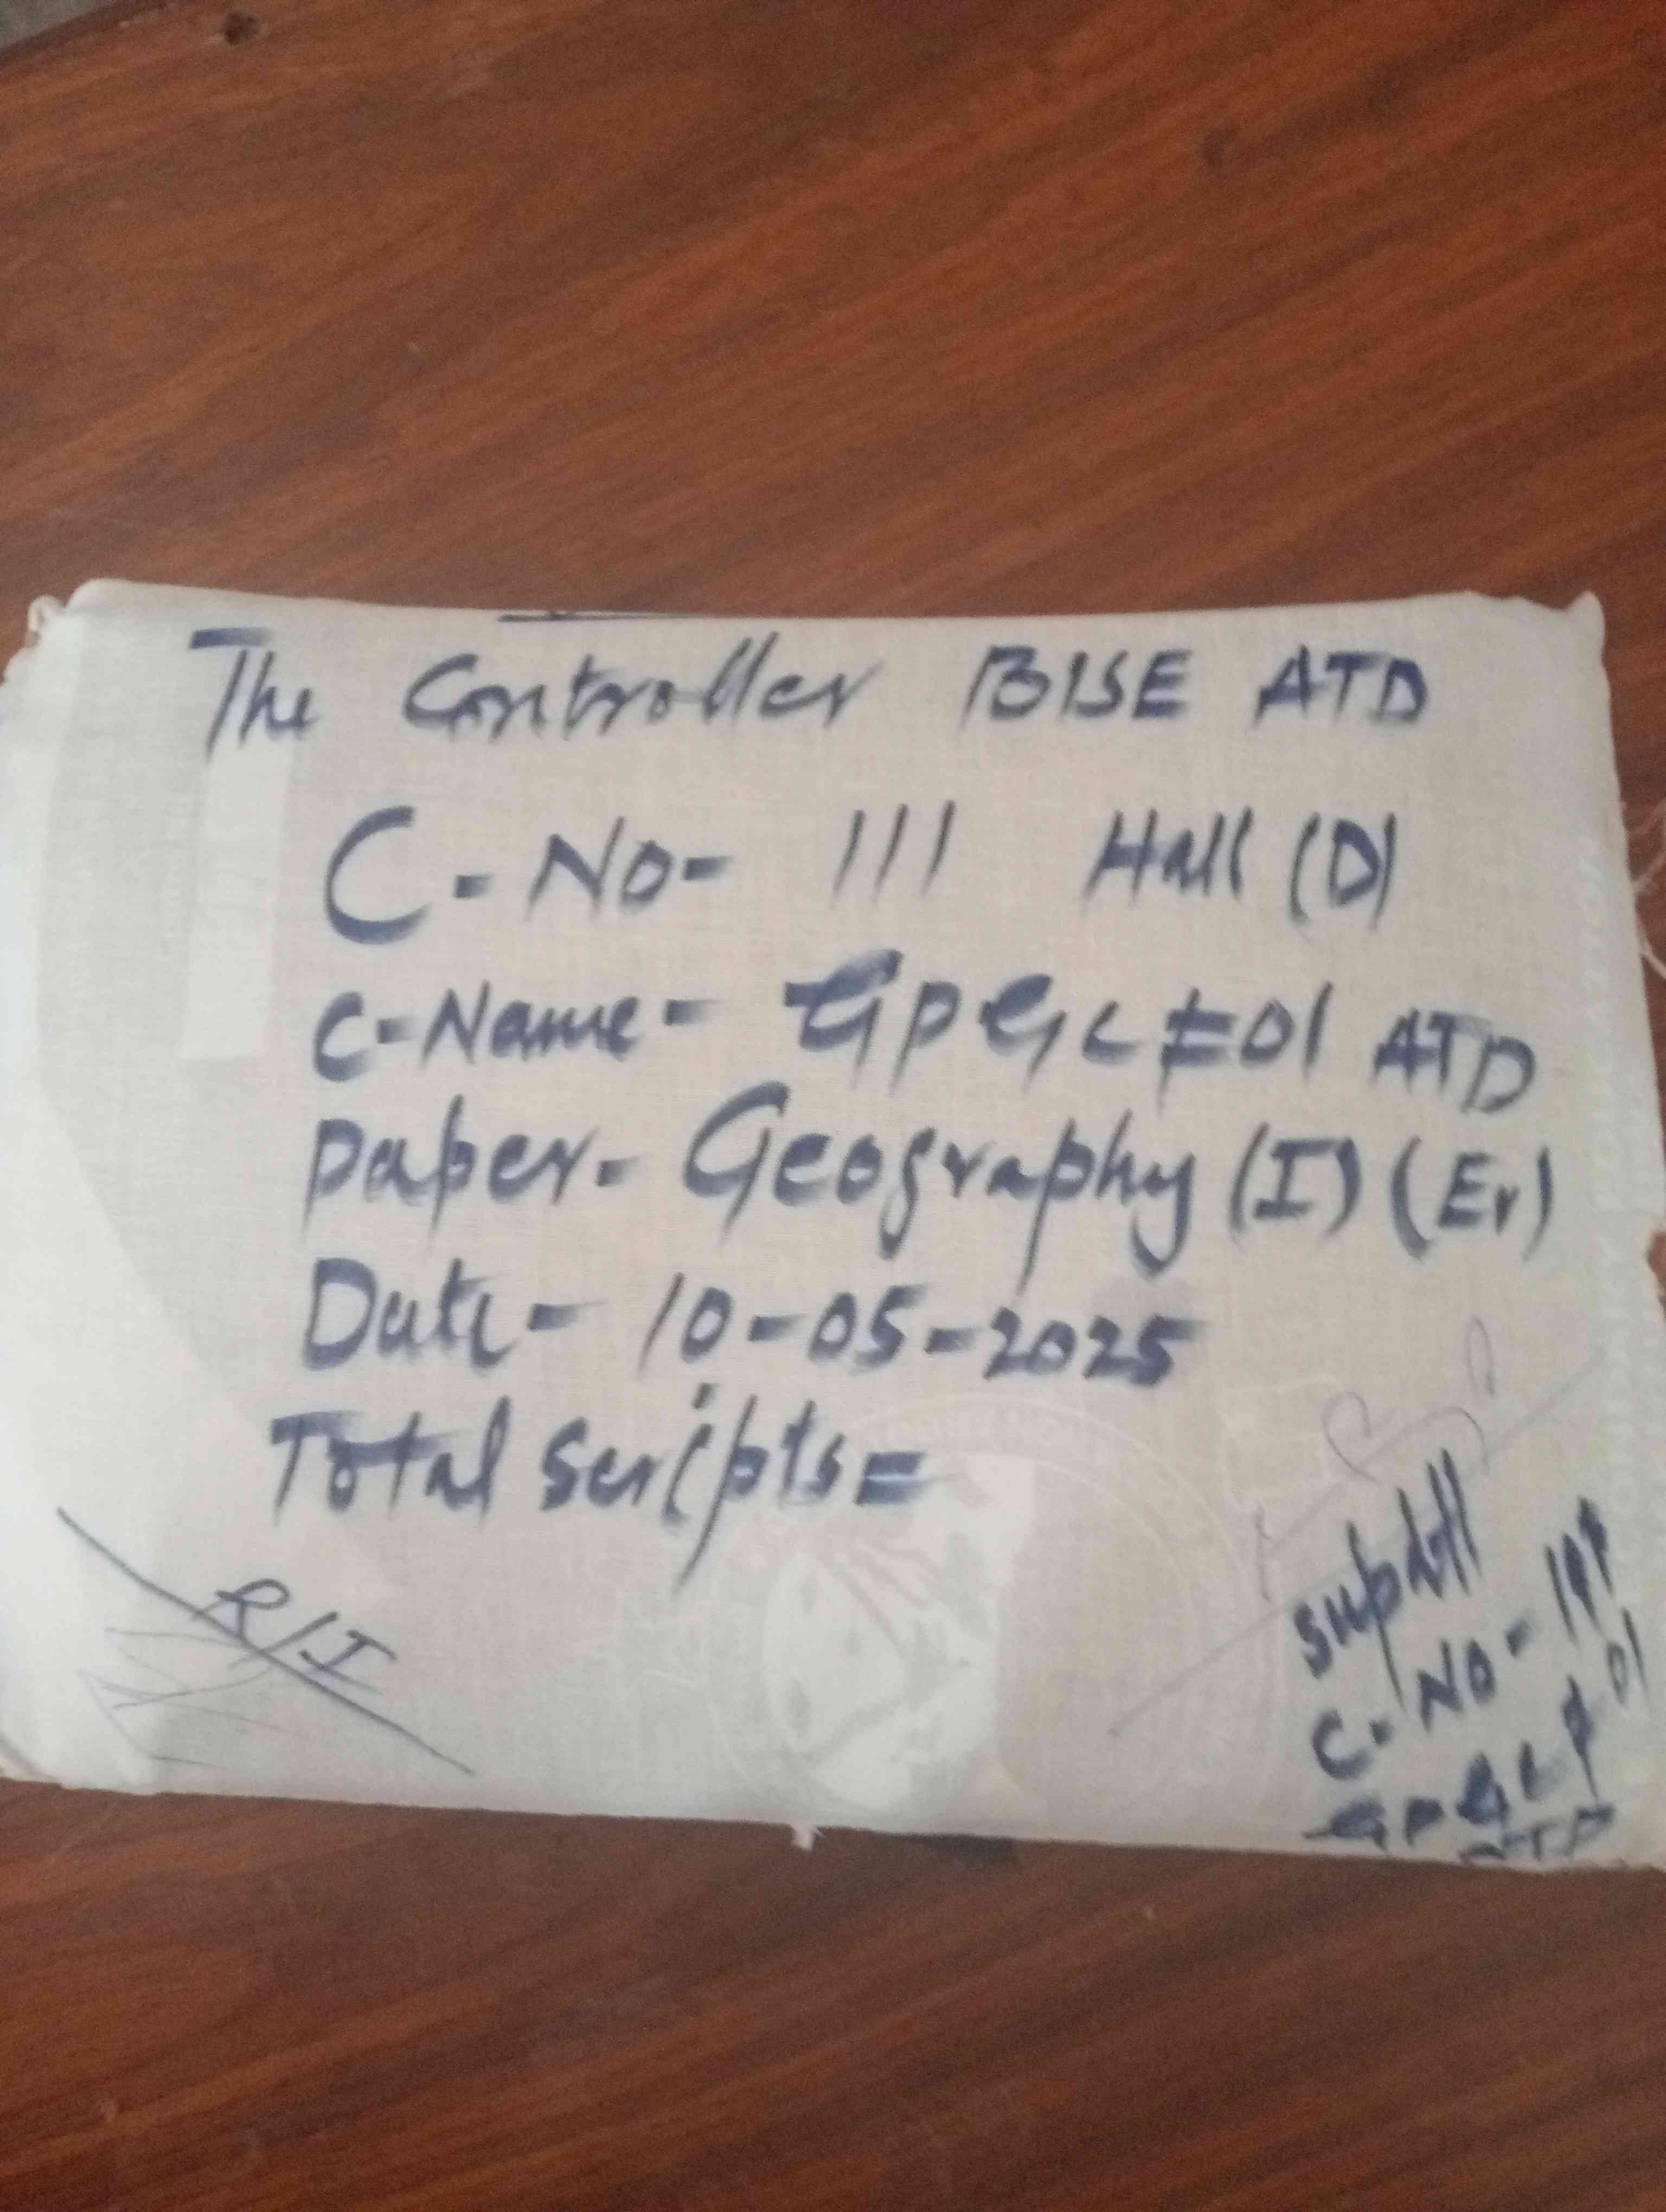 The Controller BISE ATD
C-No- 111 Hall (D)
C-Name- GPGC #01 ATD
Paper- Geography (I) (Ev)
Date- 10-05-2025
Total Scripts=
R/I
Supdtt
C-No-111
GPGC # 01
ATD